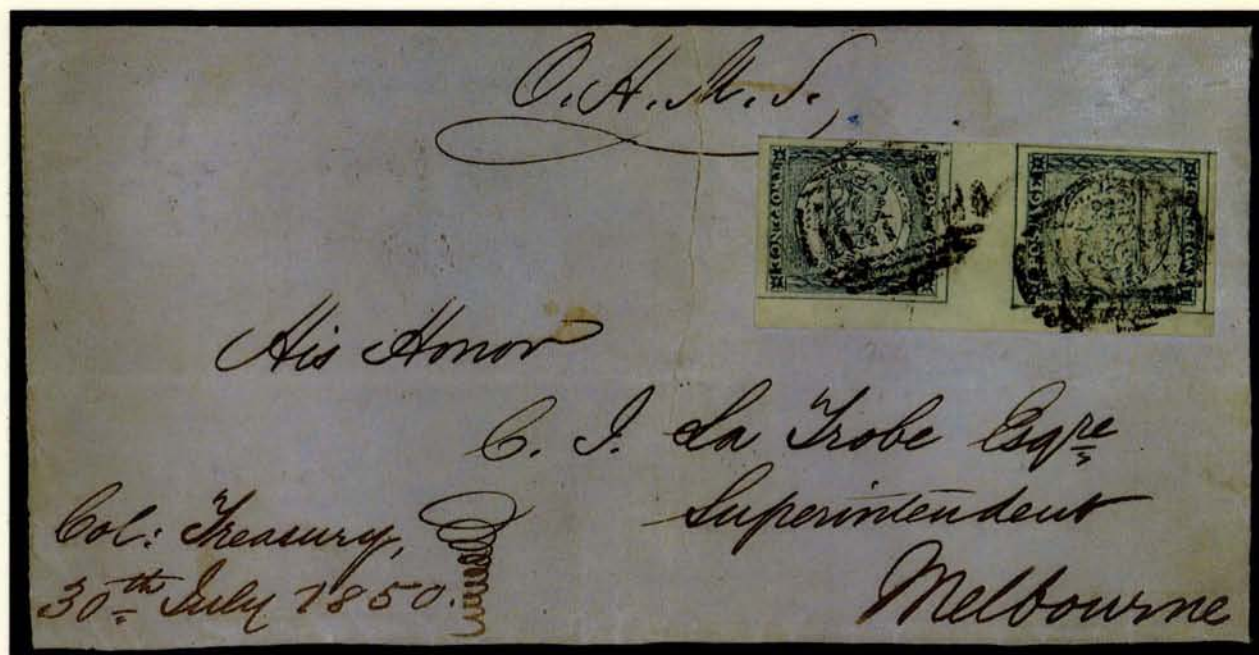 O.H.M.S.
His Honor
C. J. La Trobe Esqre
Superintendent
Melbourne
Col: Treasury,
30th July 1850.